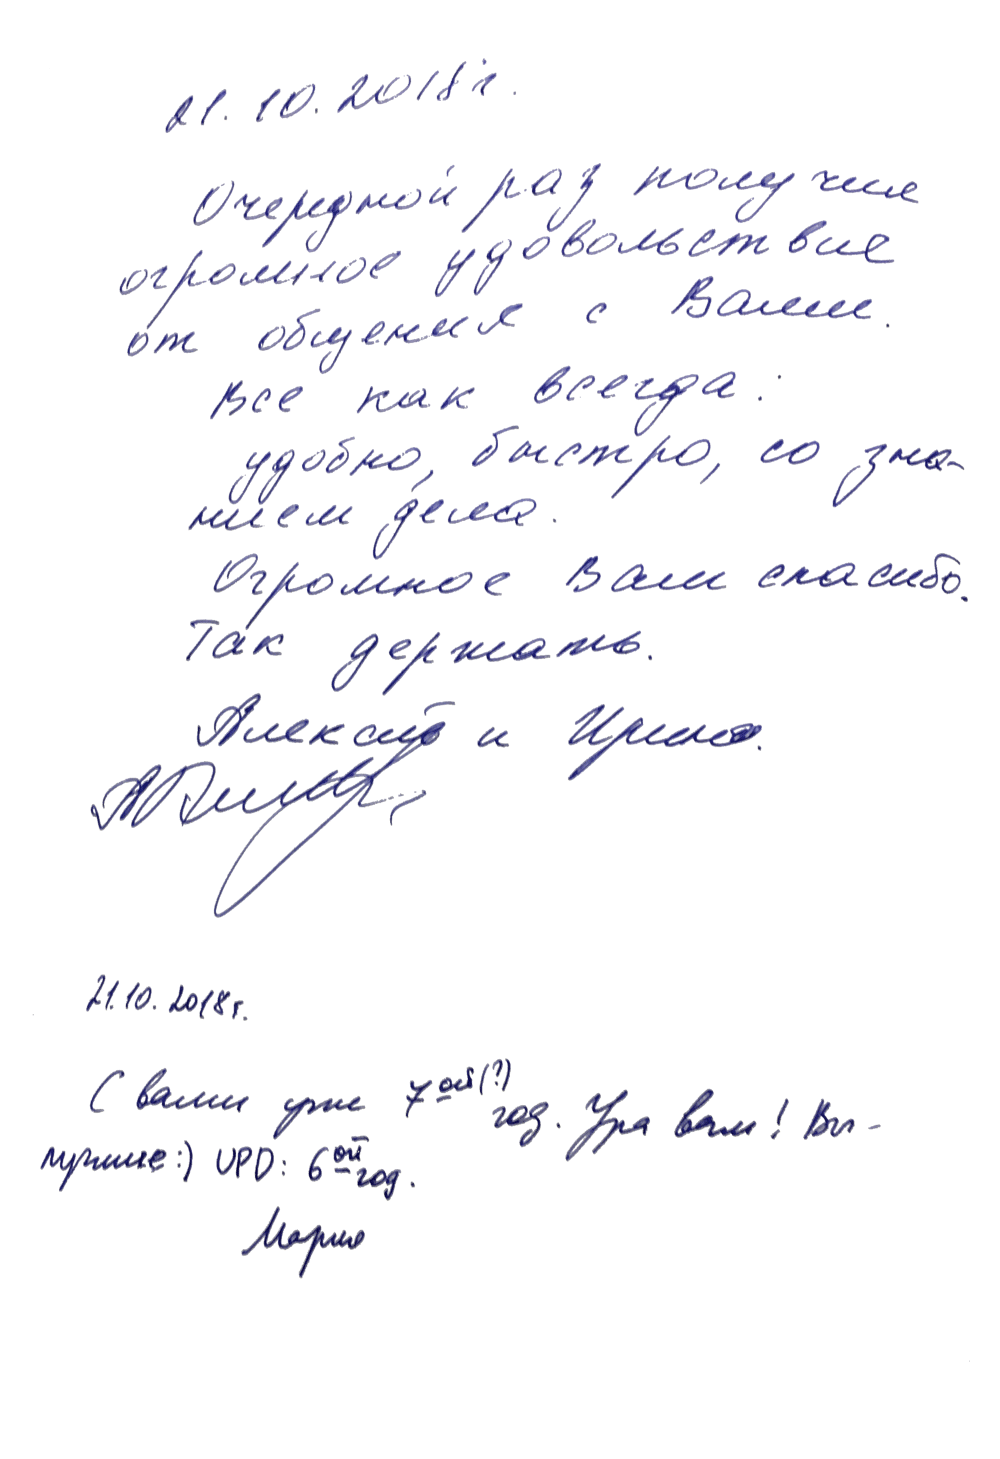 21.10.2018 г.
Очередной раз получил
огромное удовольствие
от общения с Вами.
Все как всегда:
удобно, быстро, со зна-
нием дела.
Огромное Вам спасибо.
Так держать.
и Ирина.
21.10.2018 г.
С вами уже 7ой(?) год. Ура вам! Вы -
лучшие:) UPD: 6ой год.
Мария